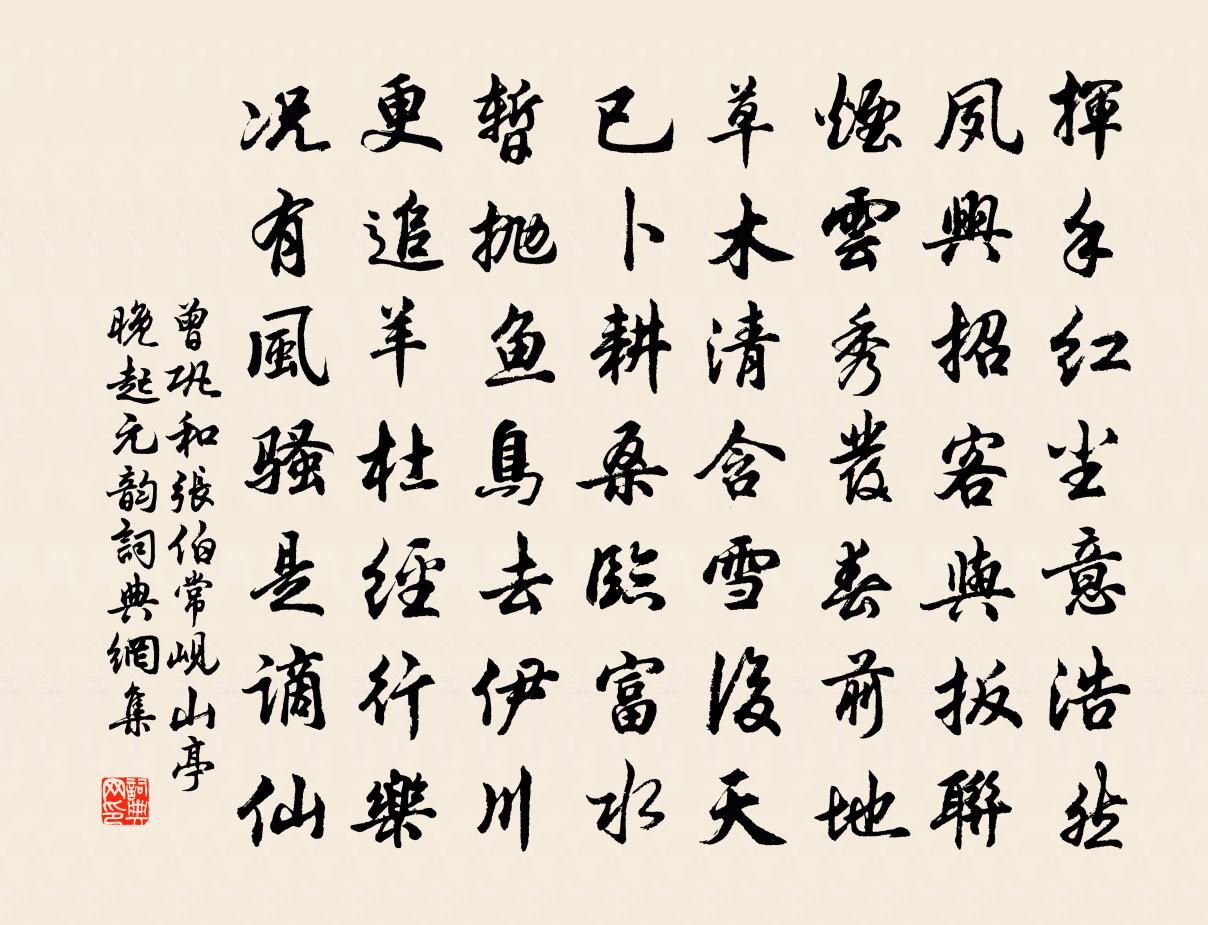 揮手红尘意浩然
夙興招客與扳聯
煙雲秀發春前地
草木清含雪後天
已卜耕桑臨富水
暫拋魚鳥去伊川
更追羊杜經行樂
况有風騷是謫仙
曾巩和張伯常峴山亭
晚起元韵詞典網集
詞典
网印